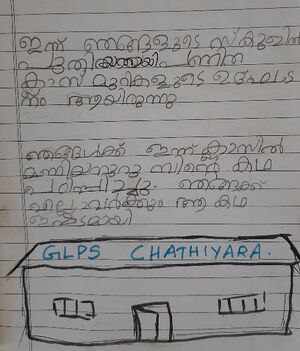 ഇന്ന് ഞങ്ങളുടെ സ്കൂളിൽ
പുതിയതായി പണിത
ക്ലാസ് മുറികളുടെ ഉദ്ഘാട
നം ആയിരുന്നു
ഞങ്ങൾക്ക് ഇന്ന് ക്ലാസിൽ
കഥ
പഠിപ്പിച്ചു. ഞങ്ങക്ക്
എല്ലാവർക്കും ആ കഥ
ഇഷ്ടമായി
GLPS CHATHIYARA.